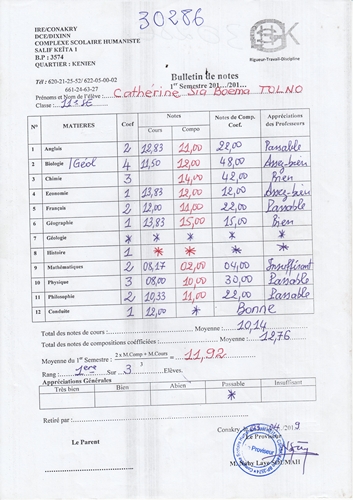 30286
IRE/CONAKRY
DCE/DIXINN
COMPLEXE SCOLAIRE HUMANISTE
SALIF KEÏTA I
B.P : 3574
QUARTIER : KENIEN
Rigueur-Travail-Discipline
Tél : 620-21-25-52/ 622-05-00-02
661-24-63-27
Bulletin de notes
1er Semestre 201…/201…
Prénoms et Nom de l'élève : Cathérine Sia Boema TOLNO
Classe : 11e
N° MATIERES Coef Notes Notes de Comp. Coef. Appréciations des Professeurs
Cours Compo
1 Anglais 2 12,83 11,00 22,00 Passable
2 Biologie /Géol 4 11,50 12,00 48,00 Assez-bien
3 Chimie 3 14,00 42,00 Bien
4 Economie 1 13,83 12,00 12,00 Assez-bien
5 Français 2 12,00 11,00 22,00 Passable
6 Géographie 1 13,83 15,00 15,00 Bien
7 Géologie * * * * *
8 Histoire 1 * * * *
9 Mathématiques 2 08,17 02,00 04,00 Insuffisant
10 Physique 3 08,00 10,00 30,00 Passable
11 Philosophie 2 10,33 11,00 22,00 Passable
12 Conduite 1 12,00 * Bonne
Total des notes de cours : Moyenne : 10,14
Total des notes de compositions coéfficiées : Moyenne : 12,76
Moyenne du 1er Semestre : 2 x M.Comp + M.Cours = 11,92
3
Rang : 1ere Sur 3 Elèves.
Appréciations Générales
Très bien Bien Abien Passable Insuffisant
*
Retiré par :
Conakry, 04/2019
Le Parent Le Proviseur
M. Naby Laye SOUMAH